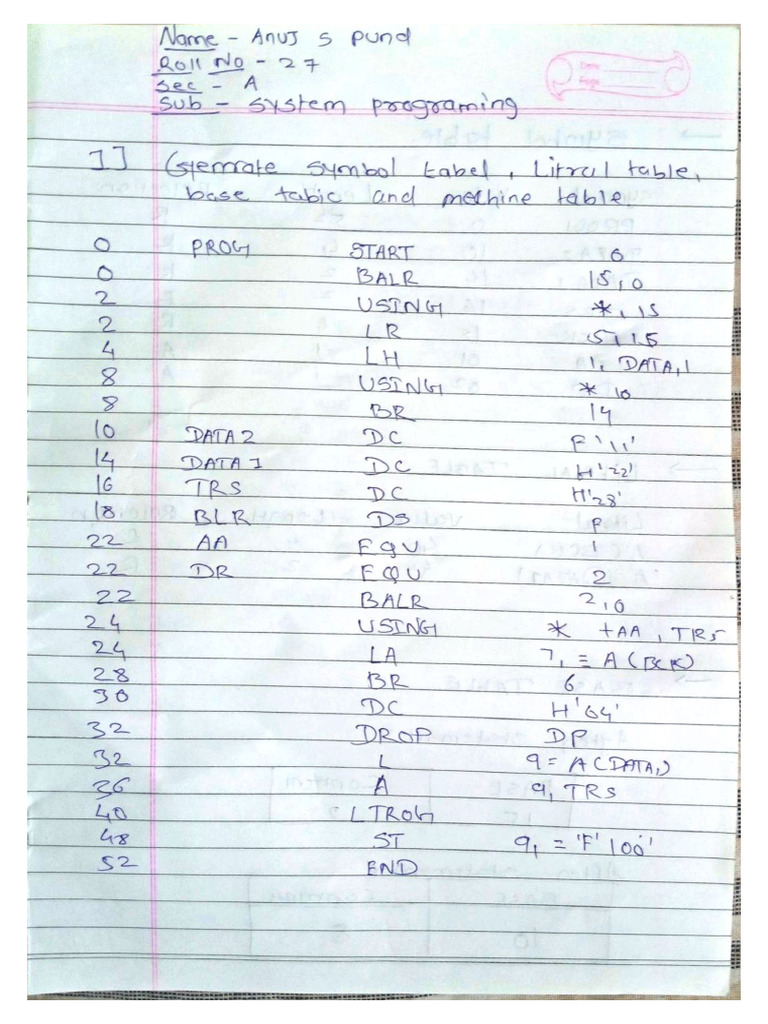 Name - Anuj S Pund
Roll No - 27
Sec - A
Sub - System programing
1] Genrate symbol tabel, Litral table,
base table and methine table.
0 PROG START 0
0 BALR 15,0
2 USING *,15
2 LR 5,15
4 LH 1, DATA,1
8 USING * 10
8 BR 14
10 DATA2 DC F'11'
14 DATA1 DC H'22'
16 TRS DC H'28'
18 BLR DS F
22 AA EQU 1
22 DR EQU 2
22 BALR 2,0
24 USING * +AA, TRS
24 LA 7, = A(BCK)
28 BR 6
30 DC H'64'
32 DROP DP
32 L 9 = A(DATA1)
36 A 9, TRS
40 LTROG
48 ST 9, = 'F'100'
52 END